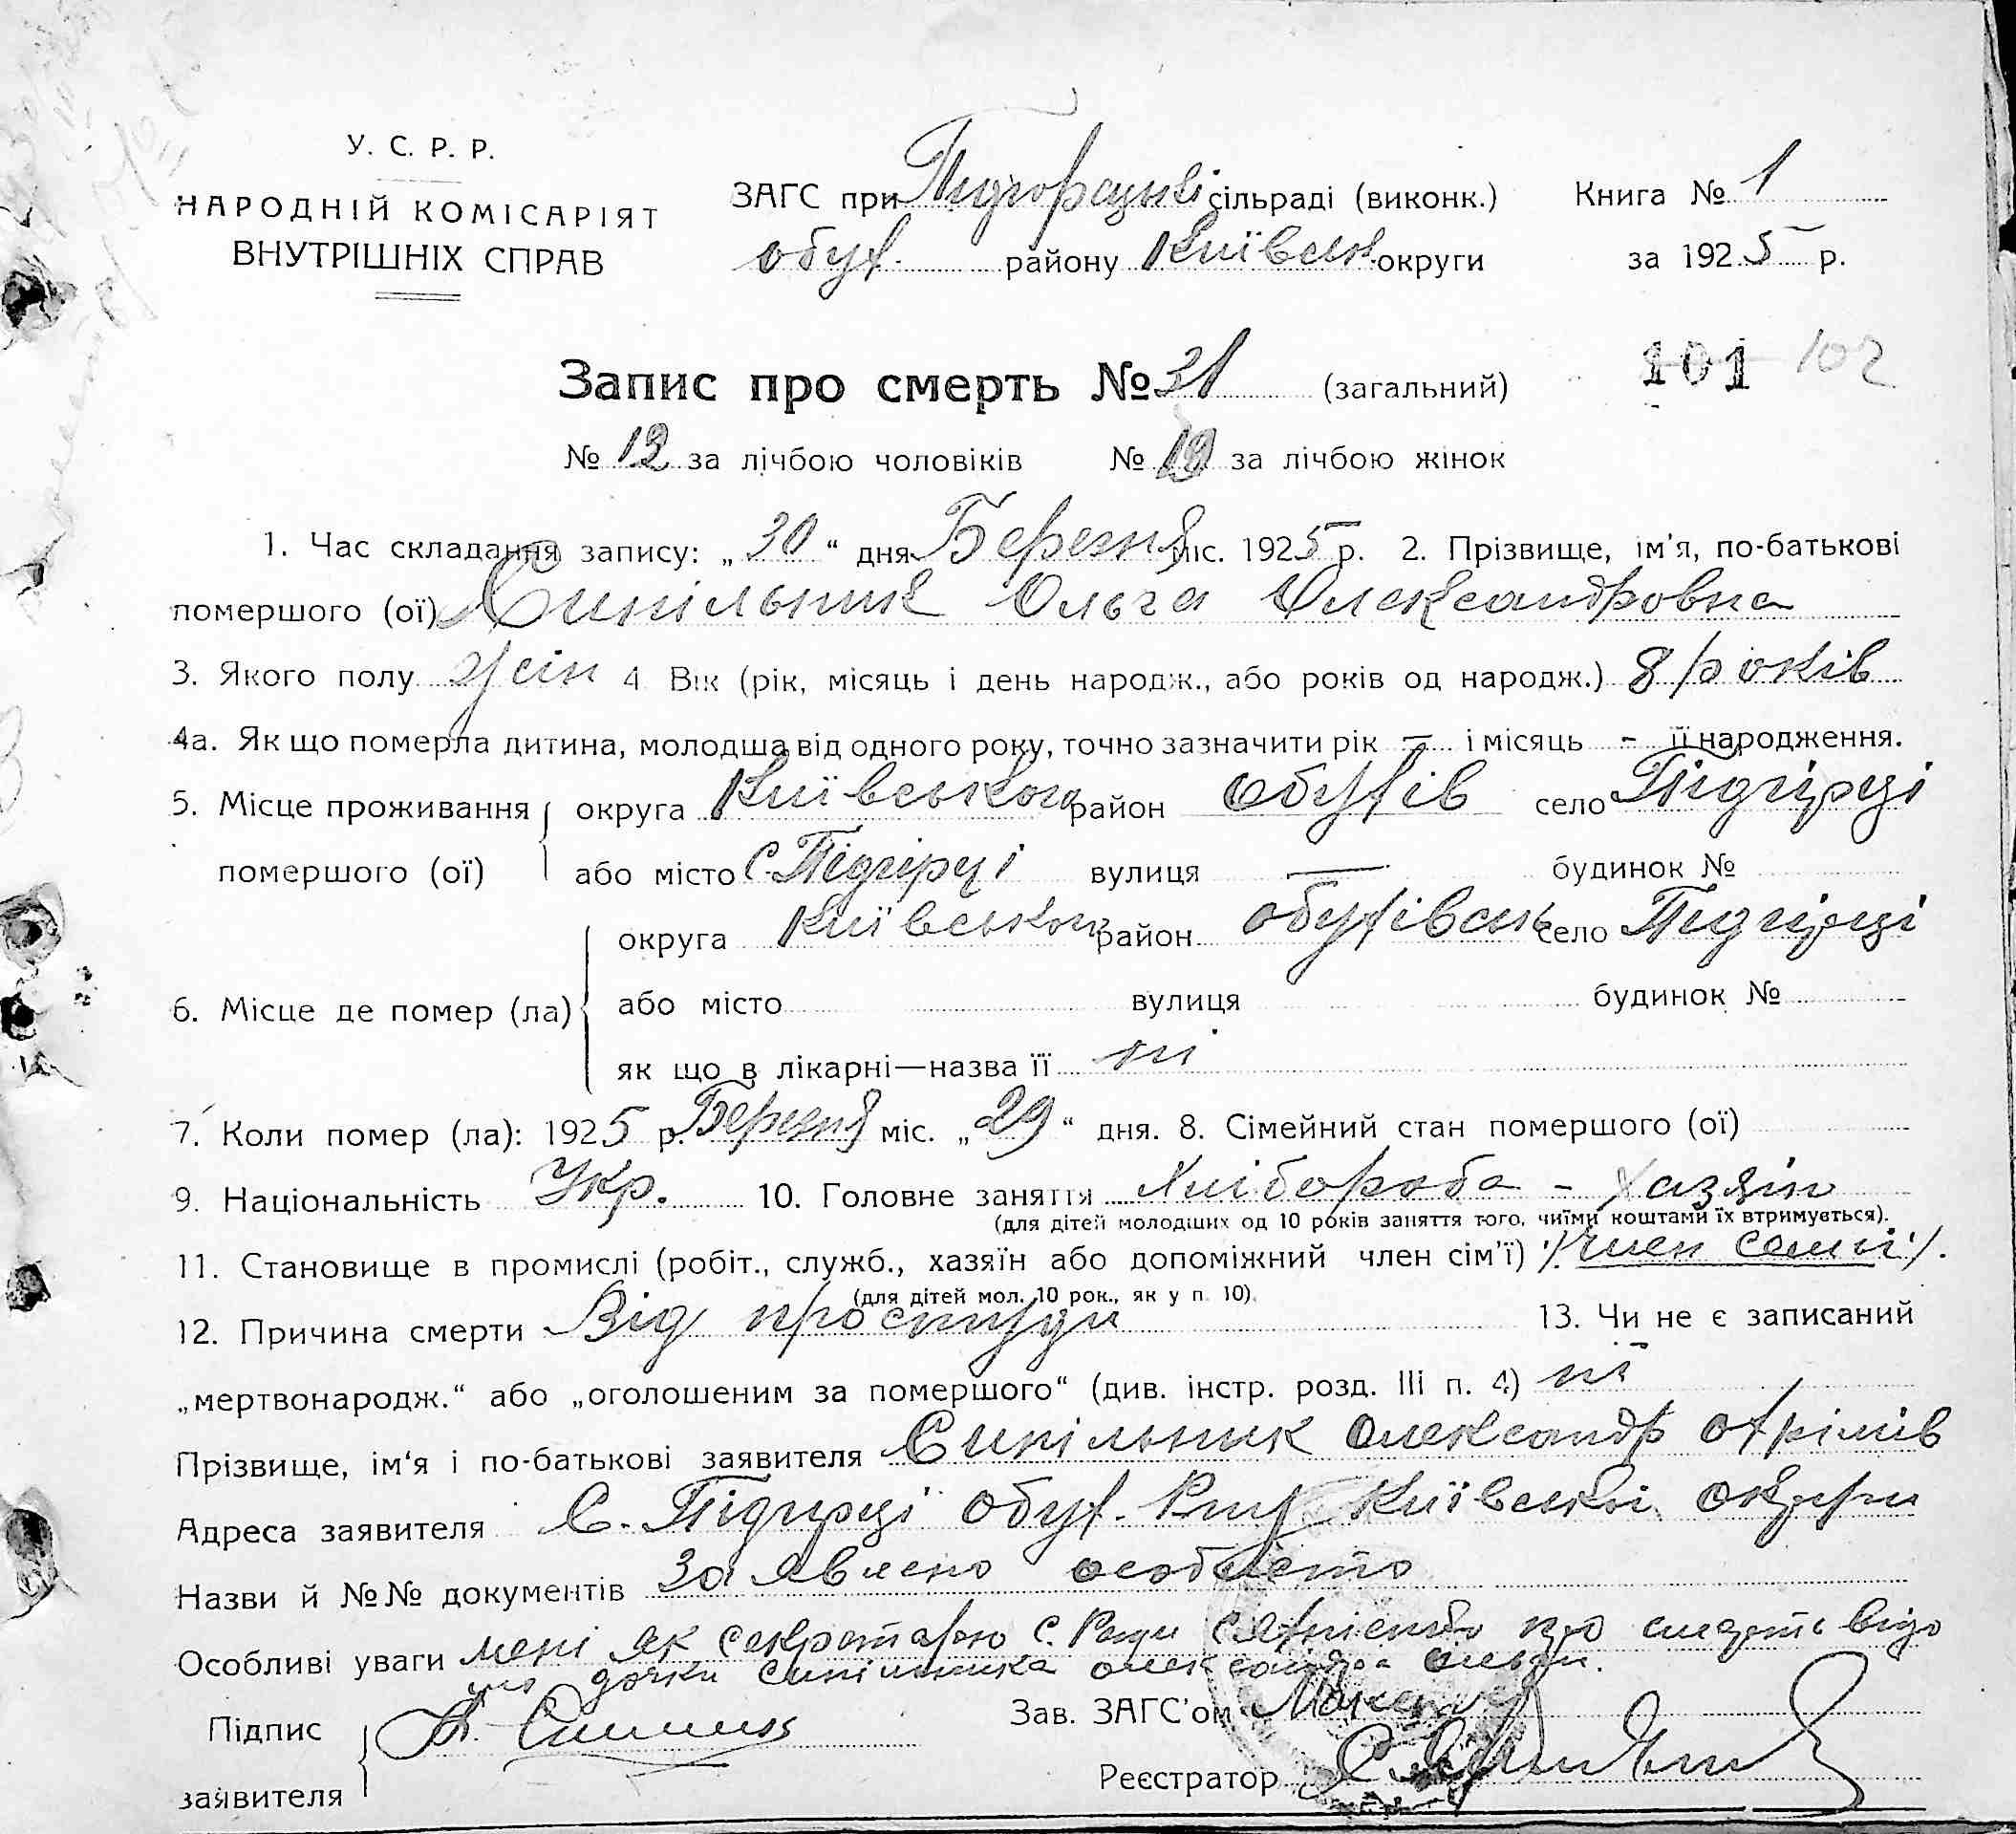 У. С. Р. Р.
НАРОДНІЙ КОМІСАРІЯТ
ВНУТРІШНІХ СПРАВ
ЗАГС при Підгорецькі сільраді (виконк.) Книга № 1
обух. району Київськ округи за 1925 р.
Запис про смерть № 31 (загальний) 101 102
№ 12 за лічбою чоловіків № 19 за лічбою жінок
1. Час складання запису: „30“ дня Березня міс. 1925 р. 2. Прізвище, ім'я, по-батькові
помершого (ої) Синільник Ольга Олександровна
3. Якого полу жін 4 Вік (рік, місяць і день народж., або років од народж.) 8 років
4а. Як що померла дитина, молодша від одного року, точно зазначити рік — і місяць - її народження.
5. Місце проживання округа Київськоі район Обухів село Підгірці
помершого (ої) або місто С. Підгірці вулиця — будинок №
округа Київськоі район обухівськ село Підгірці
6. Місце де помер (ла) або місто вулиця будинок №
як що в лікарні—назва її ні
7. Коли помер (ла): 1925 р. Березня міс. „29“ дня. 8. Сімейний стан помершого (ої)
9. Національність Укр. 10. Головне заняття Хлібороба - хазяін
(для дітей молодших од 10 років заняття того, чиїми коштами їх втримується).
11. Становище в промислі (робіт., служб., хазяїн або допоміжний член сім'ї) член семьі
(для дітей мол. 10 рок., як у п. 10).
12. Причина смерти Від простуди 13. Чи не є записаний
„мертвонародж.“ або „оголошеним за помершого“ (див. інстр. розд. III п. 4) ні
Прізвище, ім‘я і по-батькові заявителя Синільник Олександр
Адреса заявителя С. Підгірці Обух. Київської округи
Назви й №№ документів Заявлено особисто
Особливі уваги мені як секретарю С. Ради про смерть
дочки Синільника Олександра Ольги.
Підпис
заявителя
Зав. ЗАГС'ом
Реєстратор